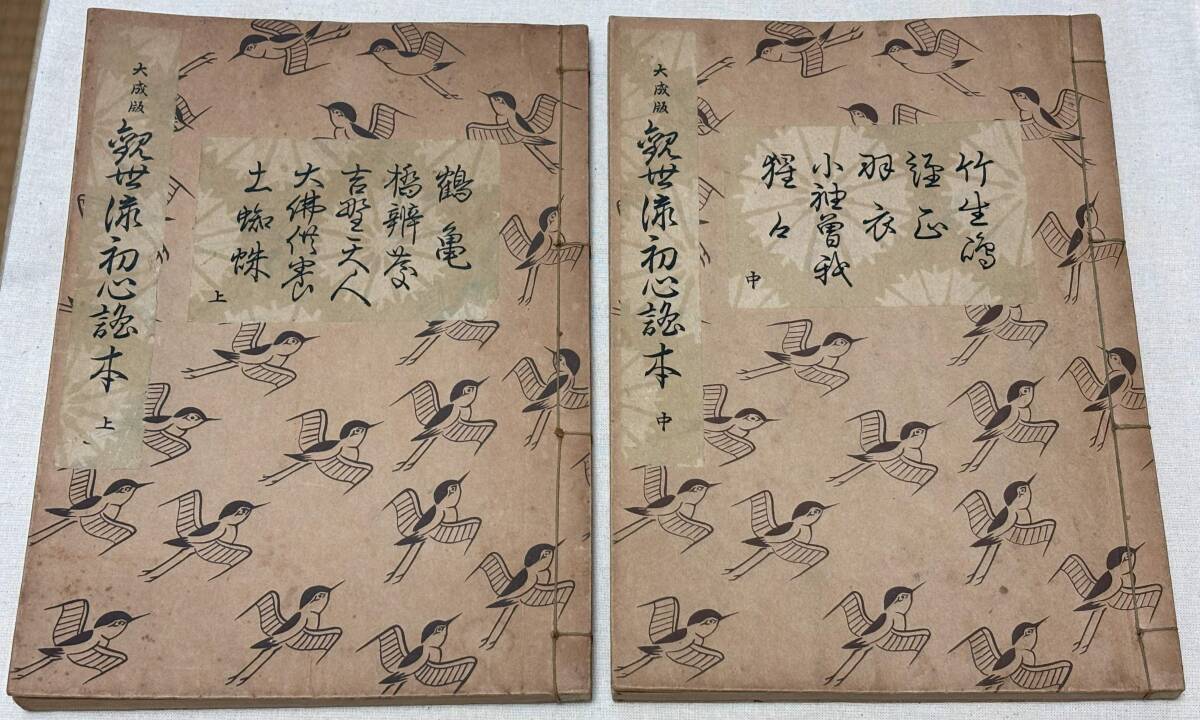 大成版
觀世流初心謠本
上
鶴亀
橋辨慶
吉野天人
大佛供養
土蜘蛛
上
大成版
觀世流初心謠本
中
竹生嶋
經正
羽衣
小袖曽我
猩々
中